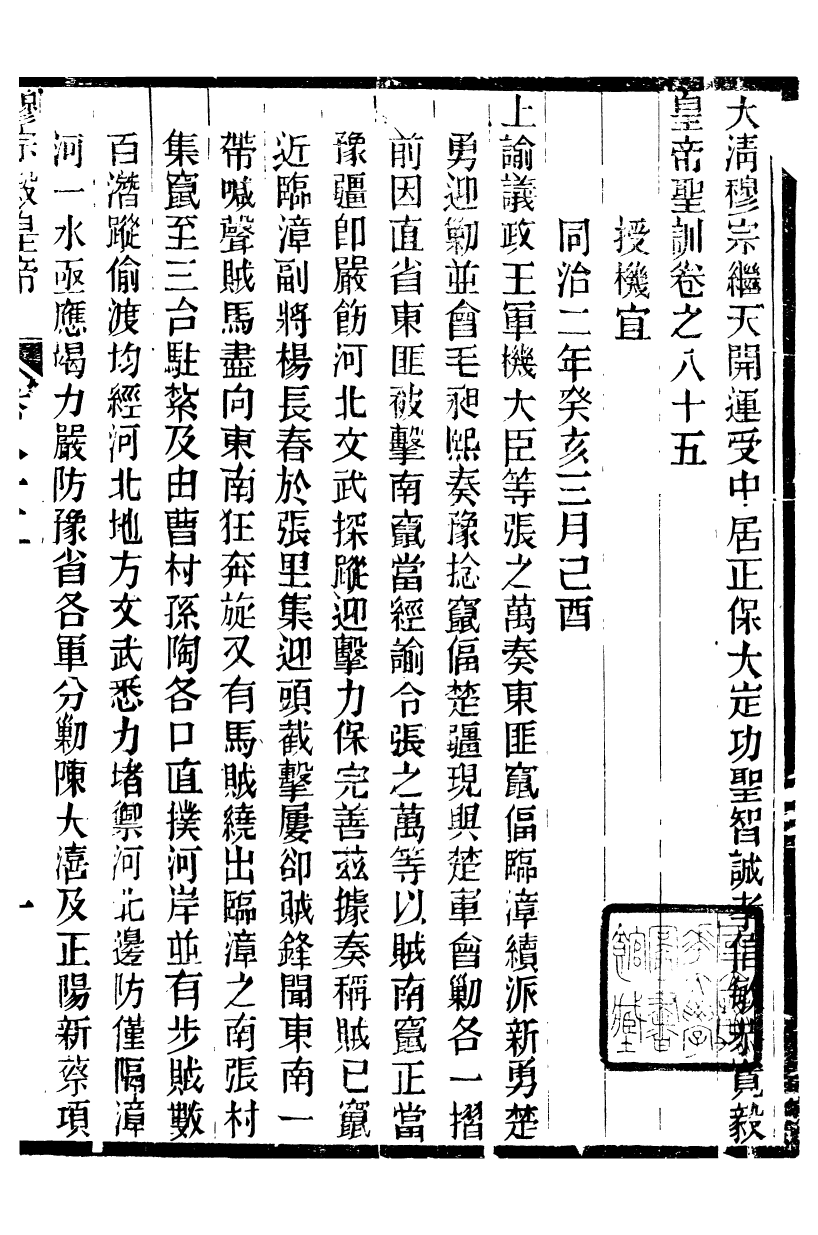 大清穆宗繼天開運受中居正保大定功聖智誠孝信敏恭寬毅
皇帝聖訓卷之八十五
授機宜
同治二年癸亥三月己酉
上諭議政王軍機大臣等張之萬奏東匪竄偪臨漳續派新勇楚
勇迎勦並會毛昶熙奏豫捻竄偪楚疆現與楚軍會勦各一摺
前因直省東匪被擊南竄當經諭令張之萬等以賊南竄正當
豫疆卽嚴飭河北文武探蹤迎擊力保完善茲據奏稱賊已竄
近臨漳副將楊長春於張里集迎頭截擊屢卻賊鋒聞東南一
帶喊聲賊馬盡向東南狂奔旋又有馬賊繞出臨漳之南張村
集竄至三台駐紮及由曹村孫陶各口直撲河岸並有步賊數
百潛蹤偷渡均經河北地方文武悉力堵禦河北邊防僅隔漳
河一水亟應竭力嚴防豫省各軍分勦陳大憘及正陽新蔡項
穆宗毅皇帝
一